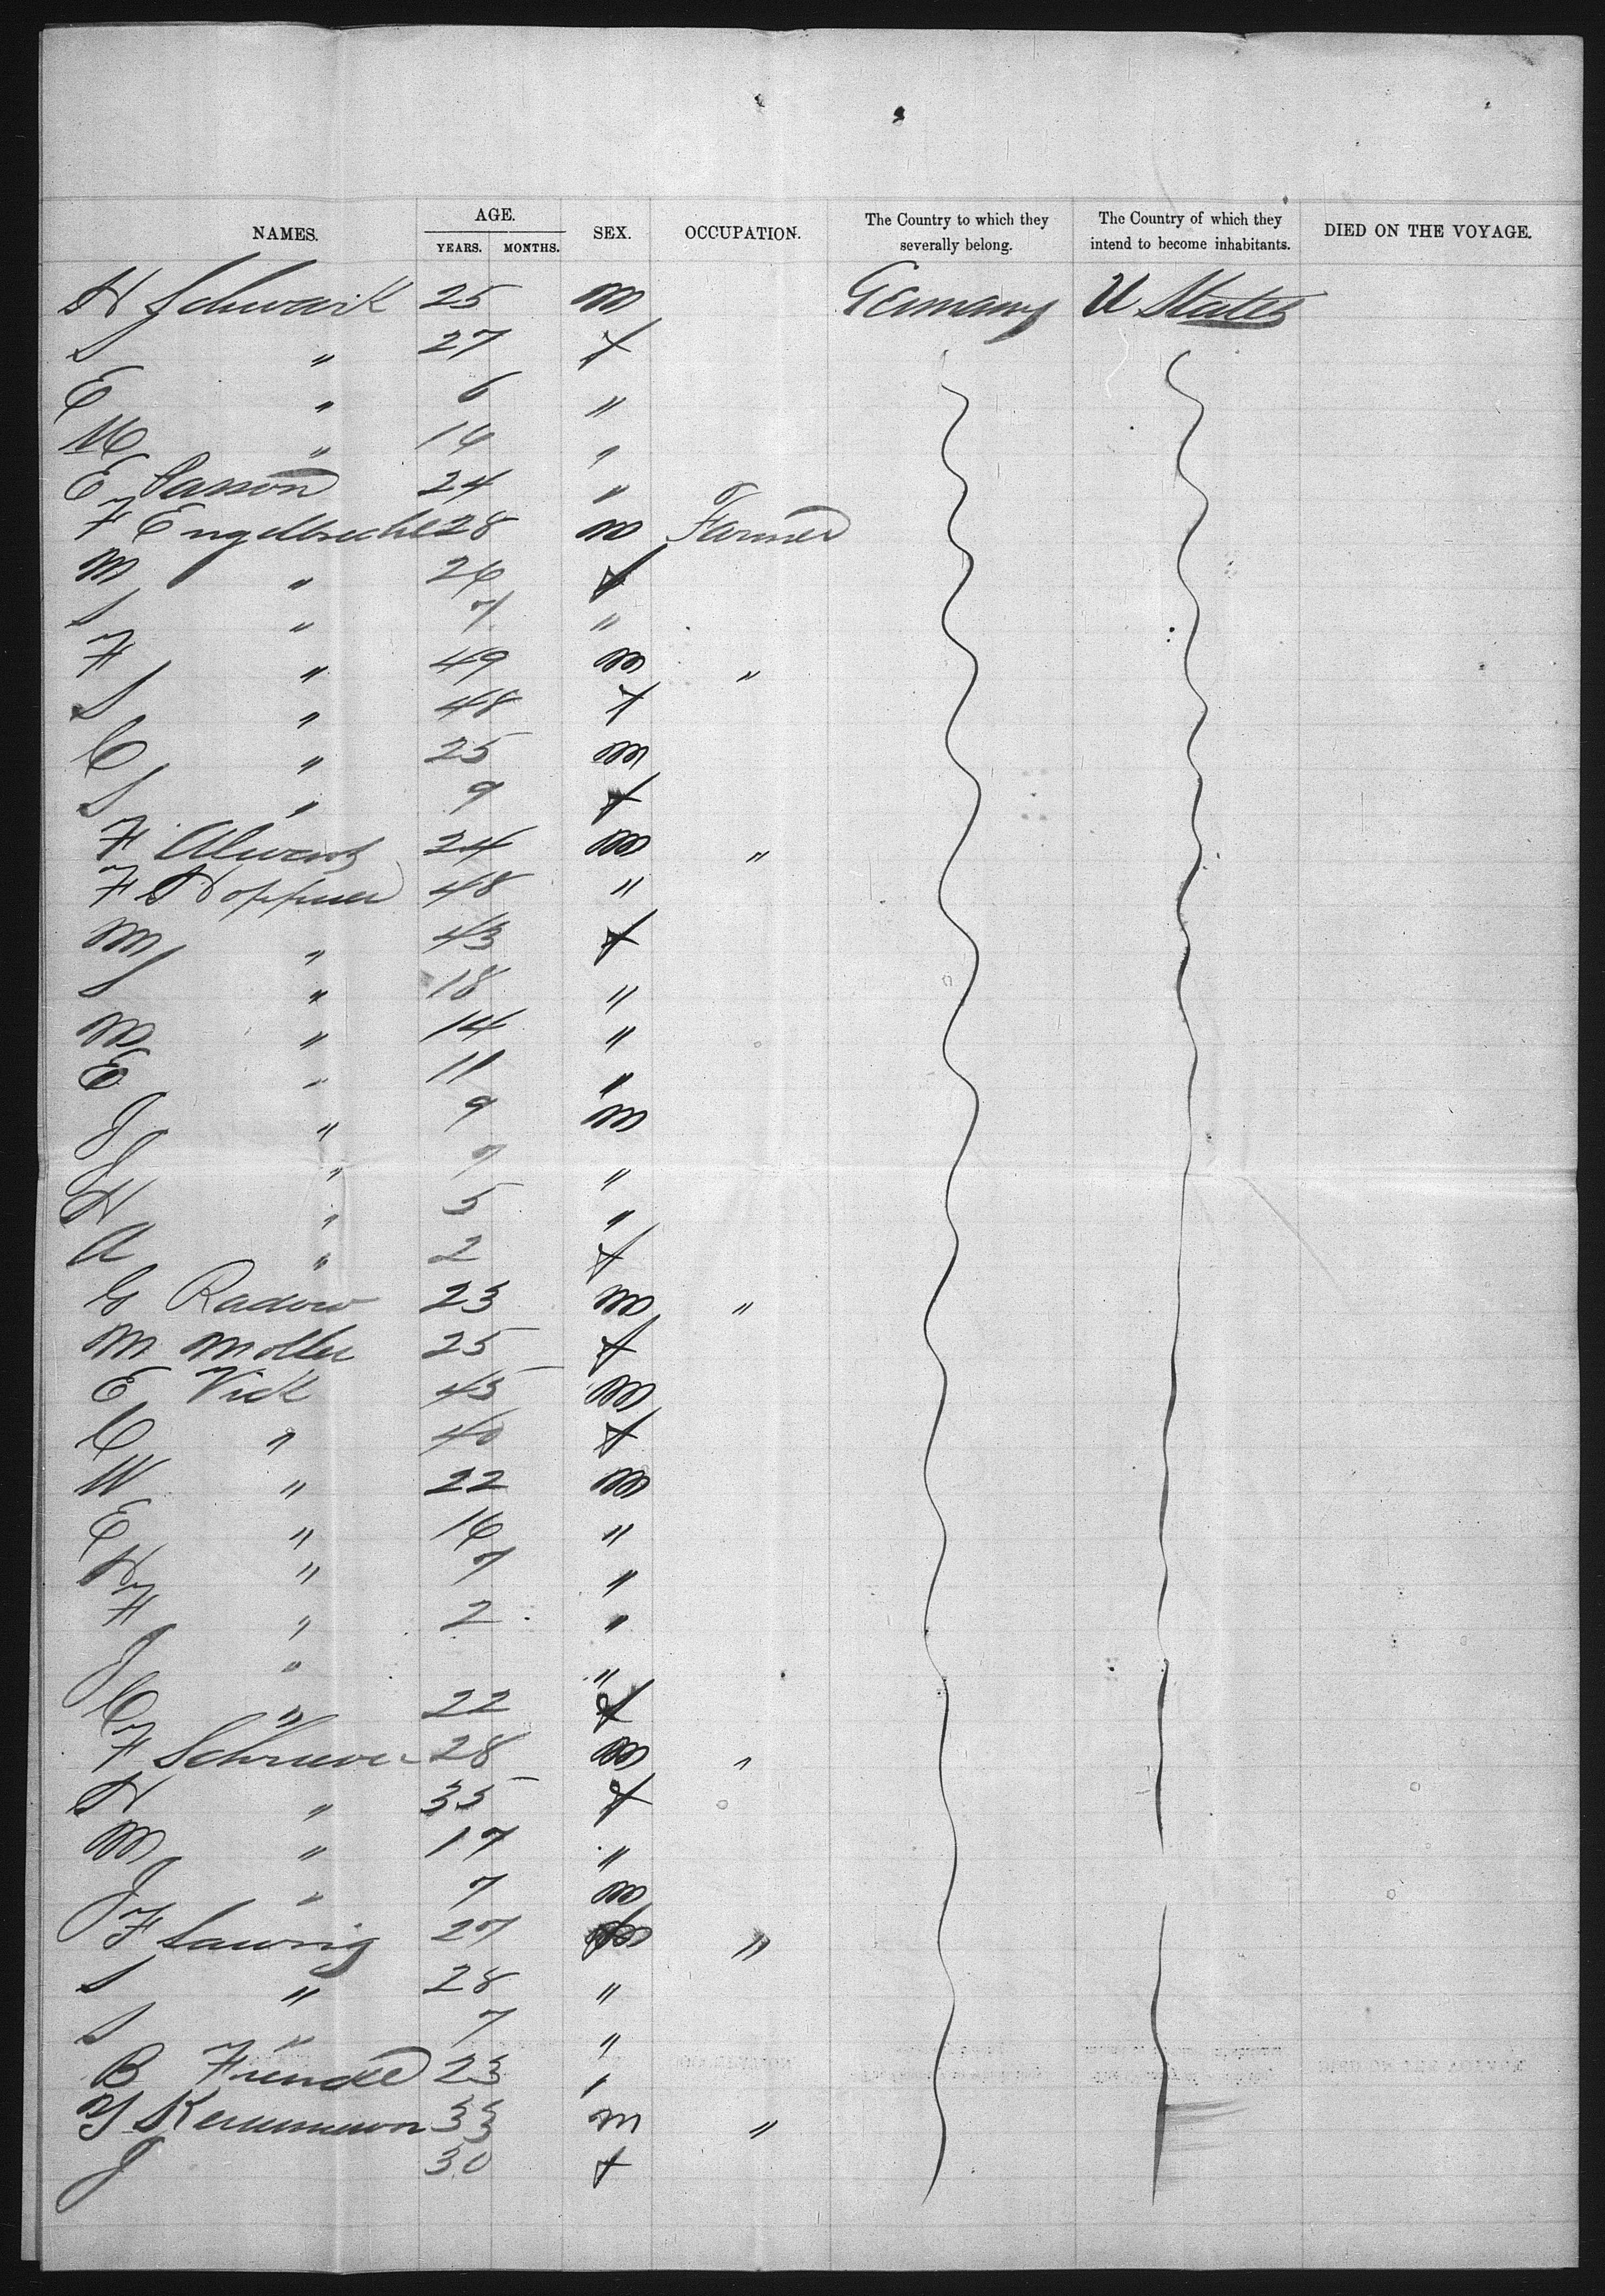 NAMES. AGE. YEARS. MONTHS. SEX. OCCUPATION. The Country to which they severally belong. The Country of which they intend to become inhabitants. DIED ON THE VOYAGE.
H Schwark 25 m Germany U States
S " 27 f
E " 6 "
M " 14 "
E 24 "
F Engelbrecht 28 m Farmer
M " 26 f
S " 7 "
F " 49 m "
S " 48 f
C " 25 m
S " 9 f
F 24 m "
F Hoppner 48 "
M " 43 f
S " 18 "
M " 14 "
E " 11 "
J " 9 m
J " 7 "
H " 5 "
A " 2 f
G Radow 23 m "
M Moller 25 f
E Vick 45 m
C " 40 f
W " 22 m
E " 16 "
H " 7 "
F " 2 "
J " "
C " 22 f
F 28 m "
H " 35 f
M " 17 "
J " 7 m
F 27 "
S " 28 "
S " 7 "
B 23 "
33 m "
J 30 f